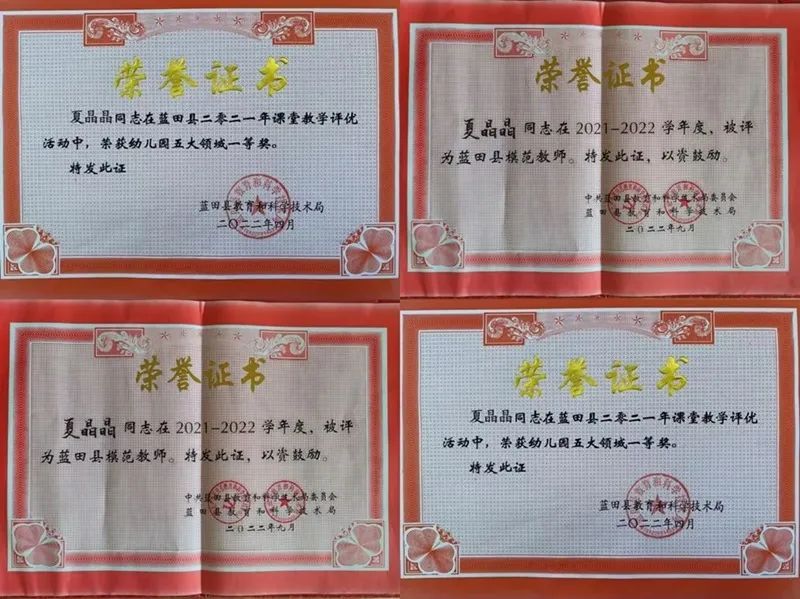 荣誉证书
夏晶晶同志在蓝田县二零二一年课堂教学评优
活动中，荣获幼儿园五大领域一等奖。
特发此证
蓝田县教育和科学技术局
二〇二二年四月
荣誉证书
夏晶晶同志在2021-2022学年度、被评
为蓝田县模范教师。特发此证，以资鼓励。
中共蓝田县教育和科学技术局委员会
蓝田县教育和科学技术局
二〇二二年九月
荣誉证书
夏晶晶同志在2021-2022学年度、被评
为蓝田县模范教师。特发此证，以资鼓励。
中共蓝田县教育和科学技术局委员会
蓝田县教育和科学技术局
二〇二二年九月
荣誉证书
夏晶晶同志在蓝田县二零二一年课堂教学评优
活动中，荣获幼儿园五大领域一等奖。
特发此证
蓝田县教育和科学技术局
二〇二二年四月